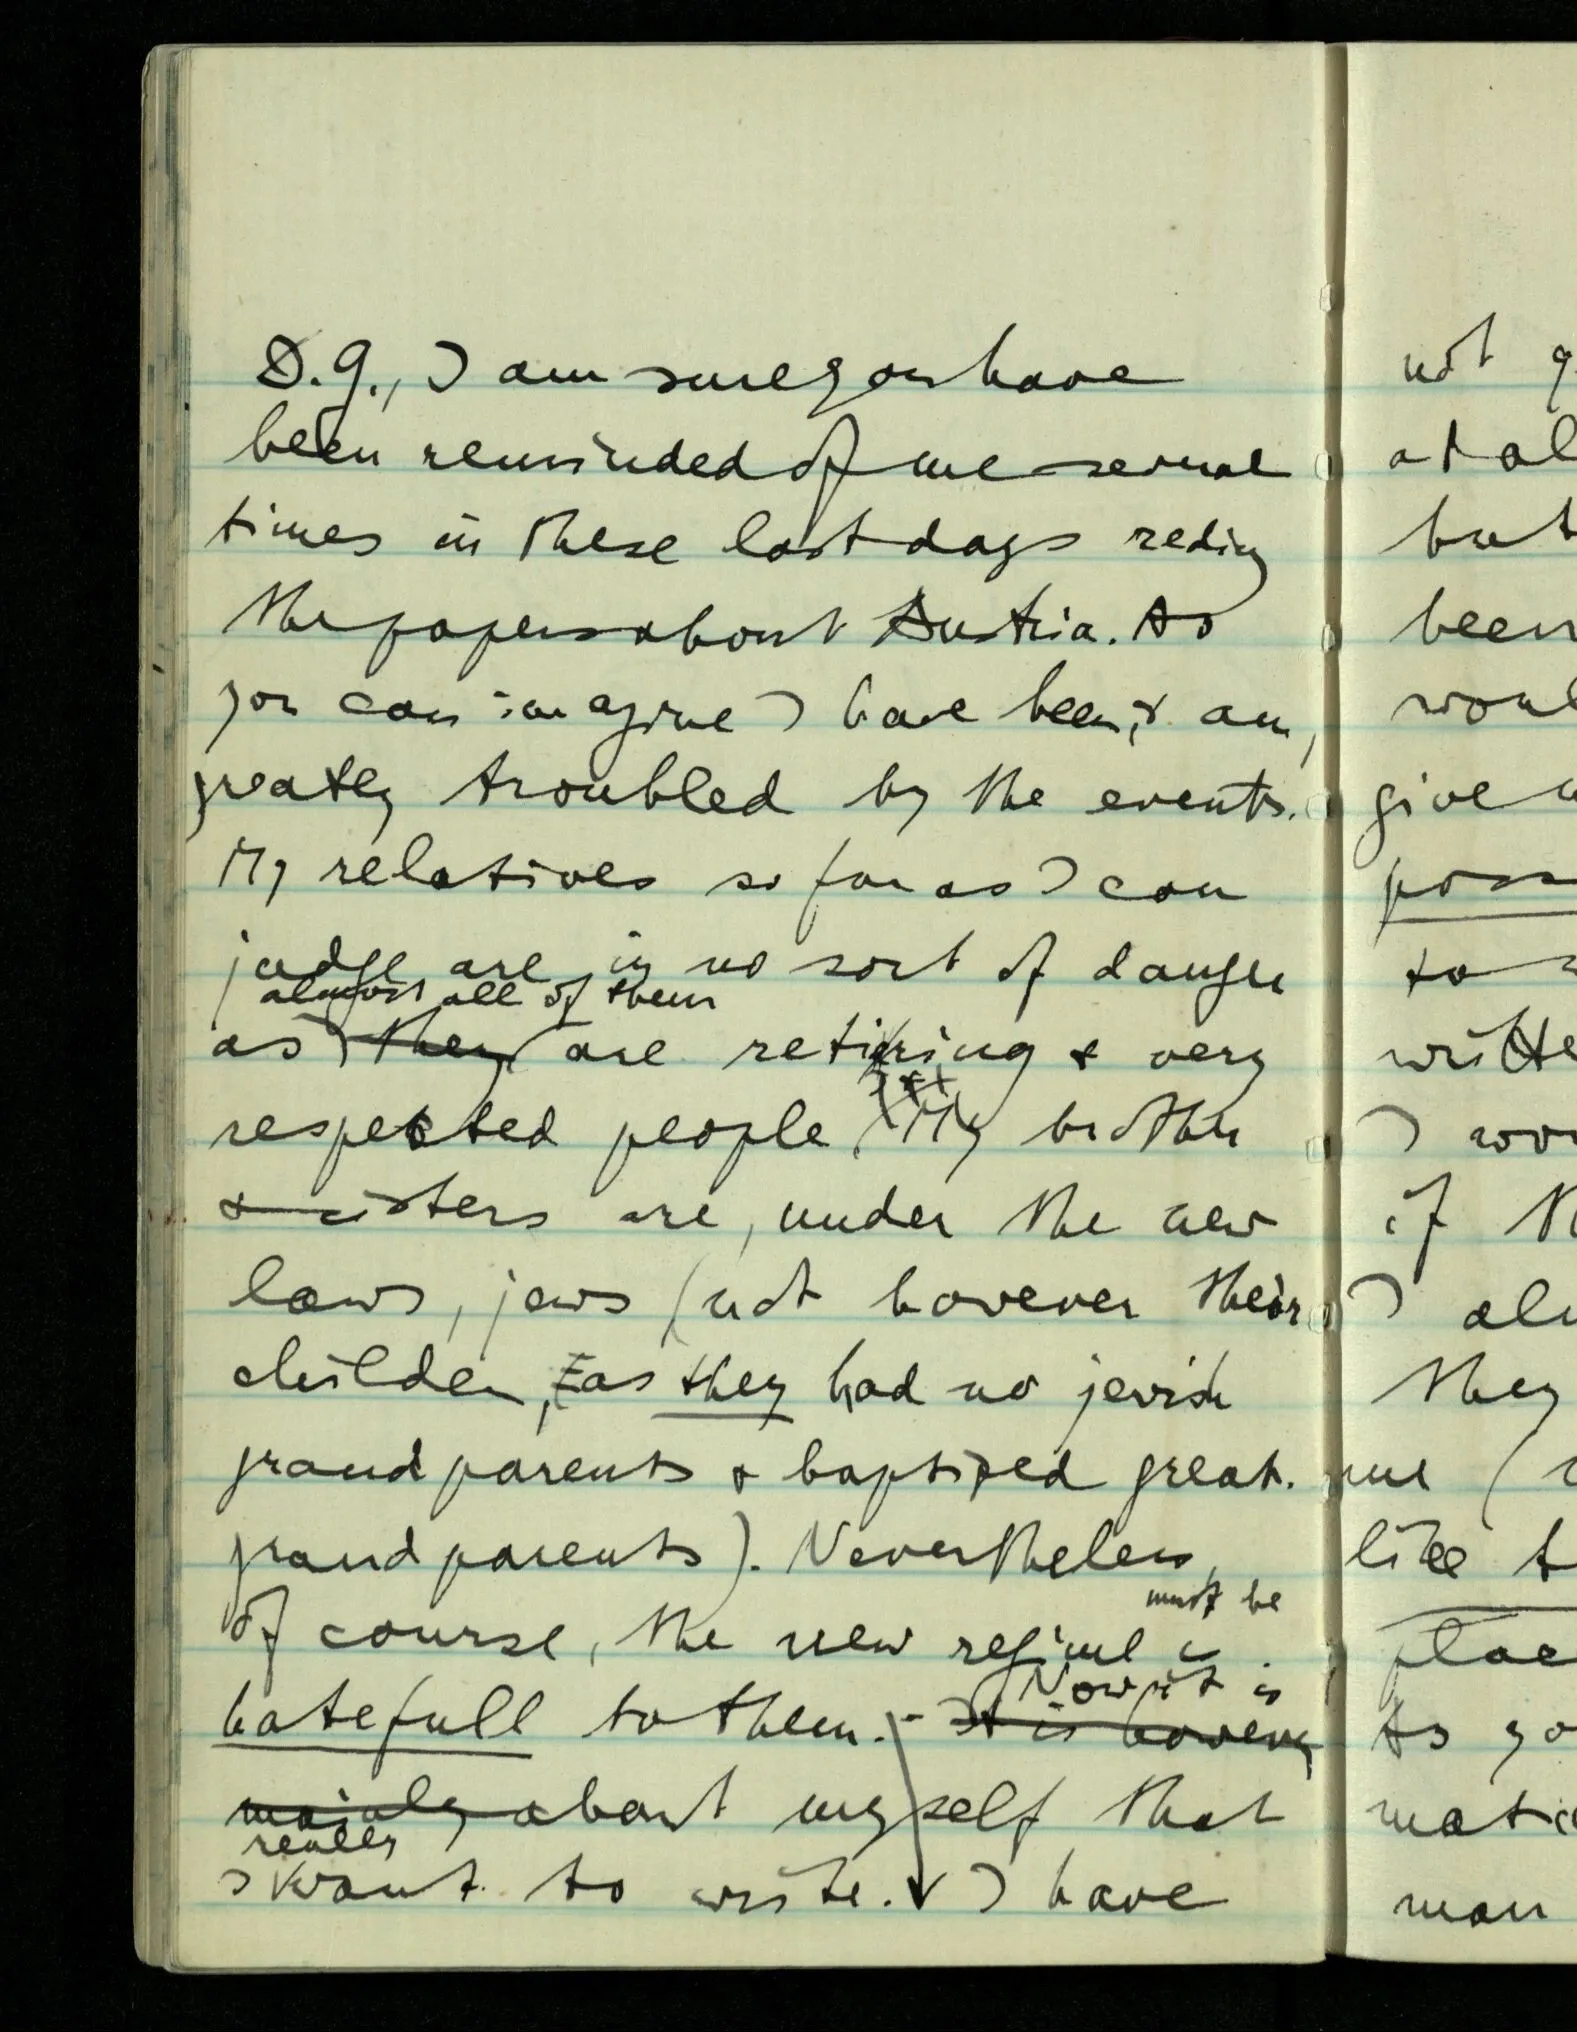 D.G., I am sure you have
been reminded of me several
times in these last days reding
the papers about Austria. As
you can imagine I have been, & am,
greatly troubled by the events.
My relatives so far as I can
judge are in no sort of danger
almost all of them
as they are retiring & very
respected people. My brother
& sisters are, under the new
laws, jews (not however their
children, as they had no jewish
grandparents & baptized great-
grandparents). Nevertheless,
must be
of course, the new regime is
hatefull to them. -
Now it is
It is however
mainly about myself that
really
I want to write. I have
not
at al
but
been
woul
give
poss
to
writte
I wo
if th
I al
they
me (
like t
plac
to yo
matic
man